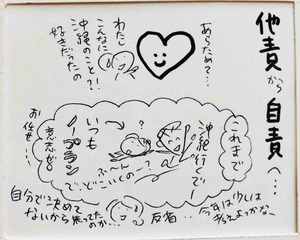 他責から自責へ…
あらためて…
わたし
こんなに
沖縄のこと?!
好きだったの
これまで
沖縄行くでー
で、どこいくの?
いつも
ノープラン
意志ゼロ
お任せ…
今年は少しは
考えよっかな、
反省…
自分で決めて
ないから
焦ってたのか…